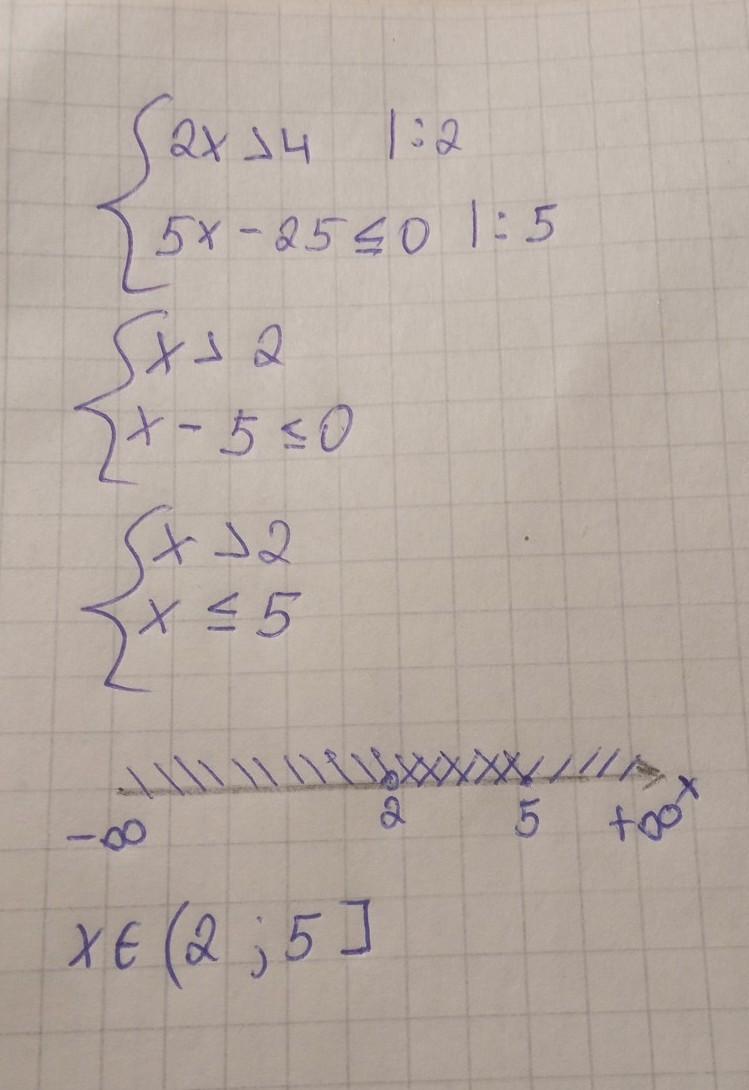 2x > 4 |:2
5x - 25 ≤ 0 |:5
x > 2
x - 5 ≤ 0
x > 2
x ≤ 5
-∞ 2 5 +∞ x
x∈(2;5]